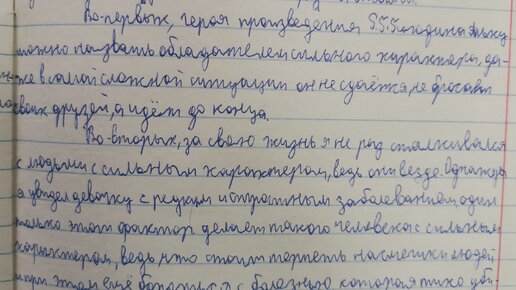 Во-первых, героя произведения Б.Б.Погодина Яльку
можно назвать обладателем сильного характера, да-
же в самой сложной ситуации он не сдаётся, не бросает
своих друзей, а идёт до конца.
Во-вторых, за свою жизнь я не раз сталкивался
с людьми с сильным характером, ведь они везде. Однажды
я увидел девочку с редким и страшным заболеванием, один
только этот фактор делает такого человека с сильным
характером, ведь, что стоит терпеть насмешки людей
и при этом ещё бороться с болезнью которая тихо уби-